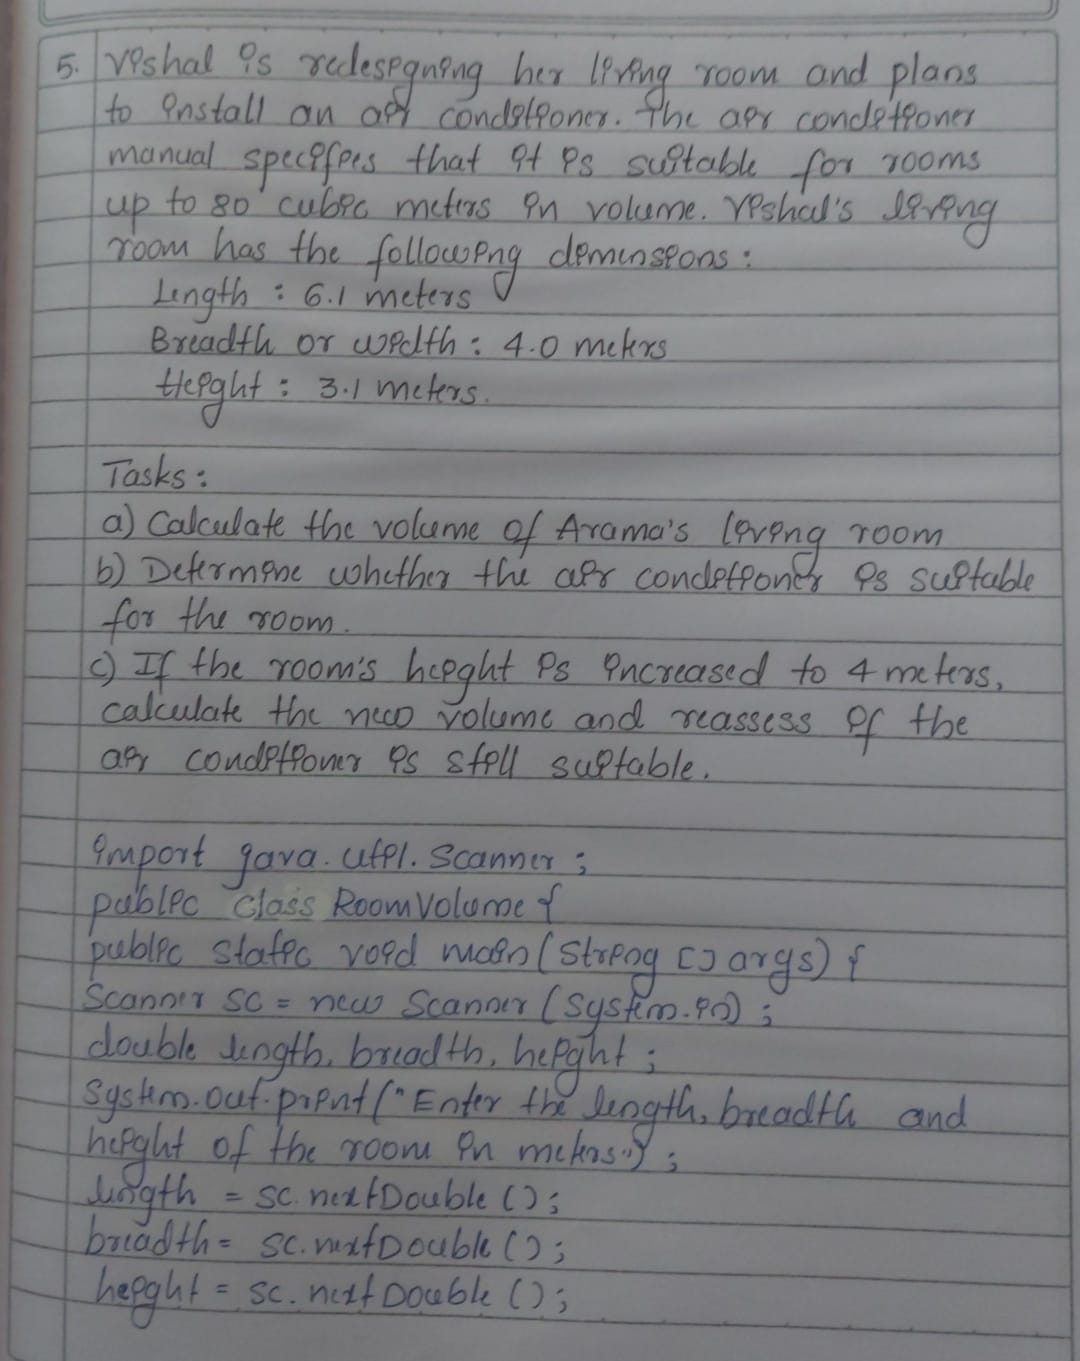 5. Vishal is redesigning her living room and plans
to install an air conditioner. The air conditioner
manual specifies that it is suitable for rooms
up to 80 cubic meters in volume. Vishal's living
room has the following dimensions :
Length : 6.1 meters
Breadth or width : 4.0 meters
Height : 3.1 meters.
Tasks :
a) Calculate the volume of Arama's living room
b) Determine whether the air conditioner is suitable
for the room.
c) If the room's height is increased to 4 meters,
calculate the new volume and reassess if the
air conditioner is still suitable.
import java.util.Scanner ;
public class RoomVolume {
public static void main (String [] args) {
Scanner sc = new Scanner (System.in) ;
double length, breadth, height ;
System.out.print ("Enter the length, breadth and
height of the room in meters:") ;
length = sc.nextDouble () ;
breadth = sc.nextDouble () ;
height = sc.nextDouble () ;